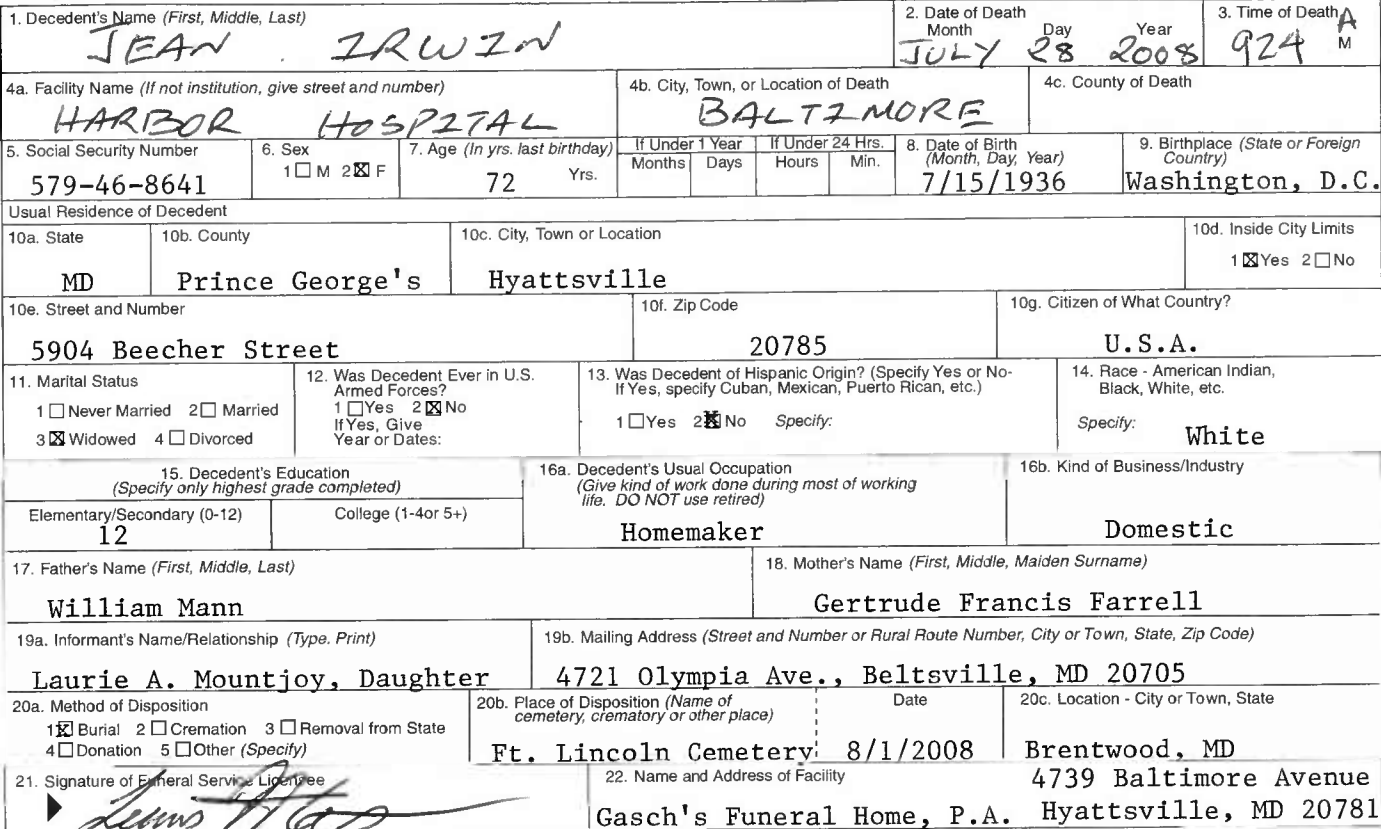 1. Decedent's Name (First, Middle, Last)
JEAN IRWIN
2. Date of Death
Month Day Year
JULY 28 2008
3. Time of Death
924 A M
4a. Facility Name (If not institution, give street and number)
HARBOR HOSPITAL
4b. City, Town, or Location of Death
BALTIMORE
4c. County of Death
5. Social Security Number
579-46-8641
6. Sex
1☐ M 2☒ F
7. Age (In yrs. last birthday)
72 Yrs.
If Under 1 Year
Months Days
If Under 24 Hrs.
Hours Min.
8. Date of Birth
(Month, Day, Year)
7/15/1936
9. Birthplace (State or Foreign
Country)
Washington, D.C.
Usual Residence of Decedent
10a. State
MD
10b. County
Prince George's
10c. City, Town or Location
Hyattsville
10d. Inside City Limits
1☒Yes 2☐No
10e. Street and Number
5904 Beecher Street
10f. Zip Code
20785
10g. Citizen of What Country?
U.S.A.
11. Marital Status
1☐Never Married 2☐ Married
3☒Widowed 4☐Divorced
12. Was Decedent Ever in U.S.
Armed Forces?
1☐Yes 2☒No
If Yes, Give
Year or Dates:
13. Was Decedent of Hispanic Origin? (Specify Yes or No-
If Yes, specify Cuban, Mexican, Puerto Rican, etc.)
1☐Yes 2☒No Specify:
14. Race - American Indian,
Black, White, etc.
Specify:
White
15. Decedent's Education
(Specify only highest grade completed)
Elementary/Secondary (0-12)
12
College (1-4or 5+)
16a. Decedent's Usual Occupation
(Give kind of work done during most of working
life. DO NOT use retired)
Homemaker
16b. Kind of Business/Industry
Domestic
17. Father's Name (First, Middle, Last)
William Mann
18. Mother's Name (First, Middle, Maiden Surname)
Gertrude Francis Farrell
19a. Informant's Name/Relationship (Type. Print)
Laurie A. Mountjoy, Daughter
19b. Mailing Address (Street and Number or Rural Route Number, City or Town, State, Zip Code)
4721 Olympia Ave., Beltsville, MD 20705
20a. Method of Disposition
1☒Burial 2☐Cremation 3☐Removal from State
4☐Donation 5☐Other (Specify)
20b. Place of Disposition (Name of
cemetery, crematory or other place)
Ft. Lincoln Cemetery
Date
8/1/2008
20c. Location - City or Town, State
Brentwood, MD
21. Signature of Funeral Service Licensee
22. Name and Address of Facility
4739 Baltimore Avenue
Gasch's Funeral Home, P.A. Hyattsville, MD 20781